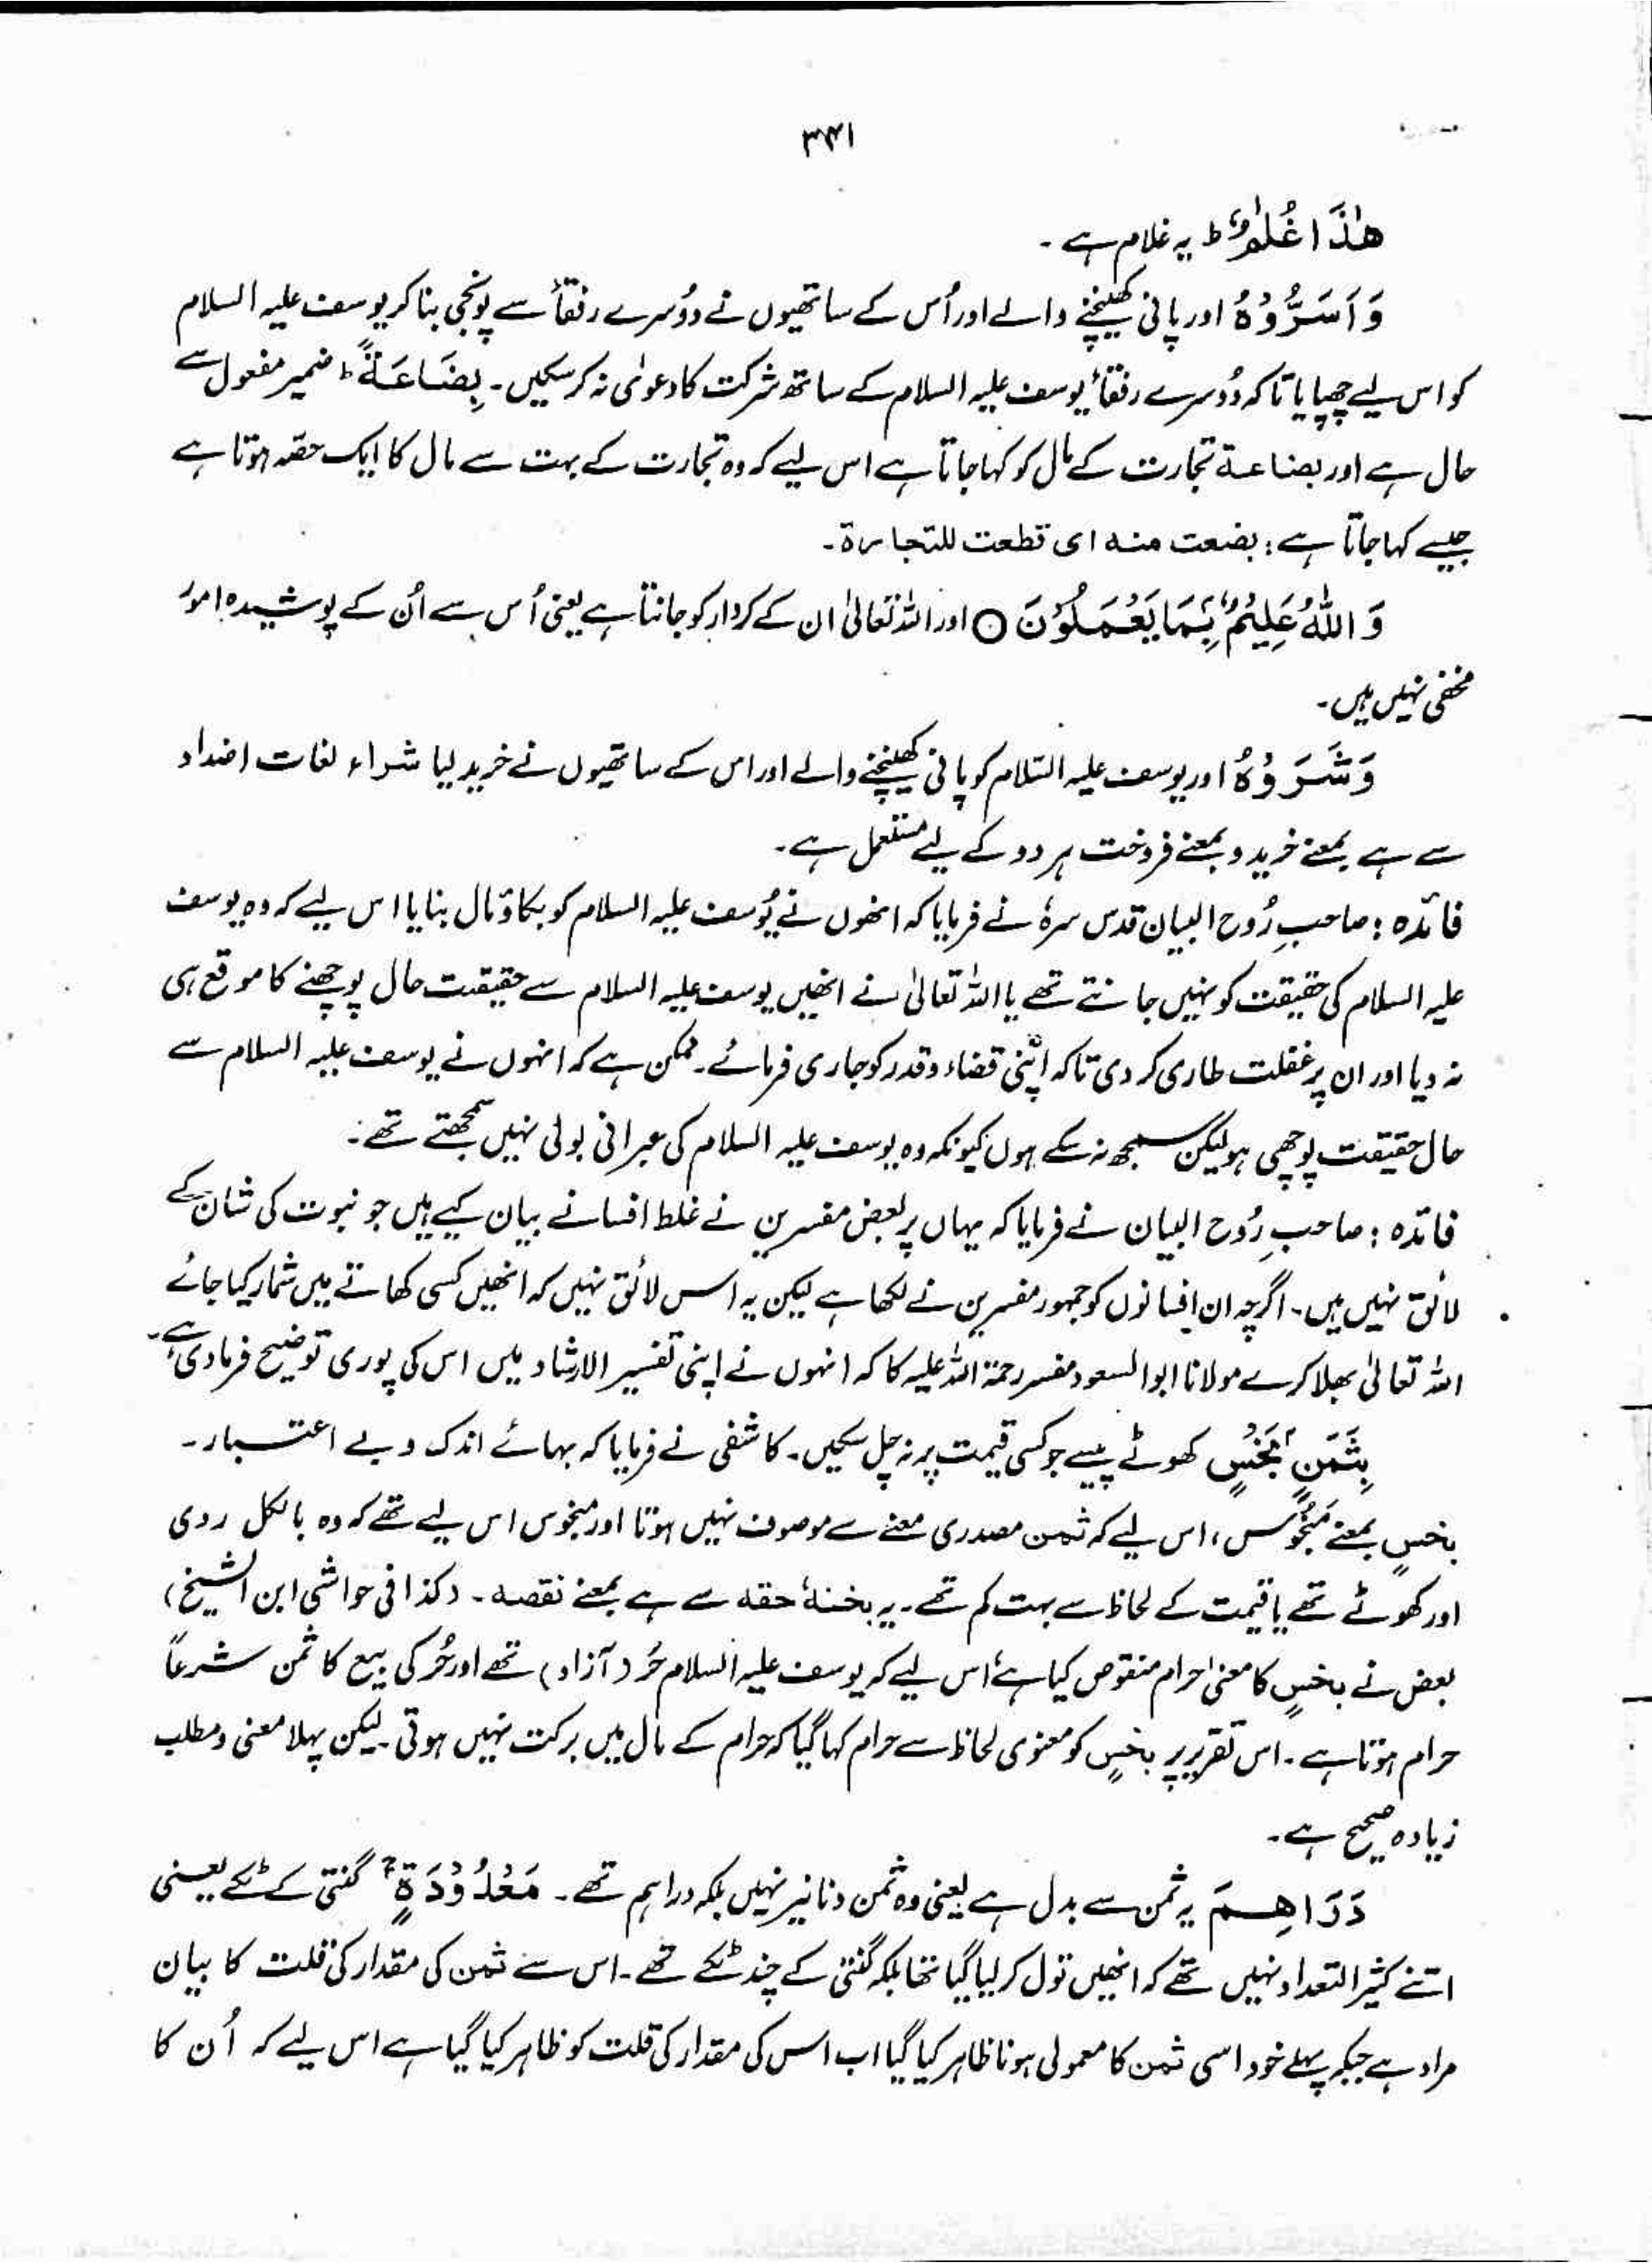 ۳۴۱
هٰذَا غُلٰمٌ ؕ یہ غلام ہے ۔
وَ اَسَرُّوْهُ اور پانی کھینچنے والے اور اُس کے ساتھیوں نے دوُسرے رفقأ سے پونجی بنا کر یوسف علیہ السلام
کو اس لیے چھپایا تاکہ دوُسرے رفقأ یوسف علیہ السلام کے ساتھ شرکت کا دعوٰی نہ کرسکیں ۔ بِضَاعَةً ؕ ضمیر مفعول سے
حال ہے اور بضاعۃ تجارت کے مال کو کہا جاتا ہے اس لیے کہ وہ تجارت کے بہت سے مال کا ایک حصّہ ہوتا ہے
جیسے کہا جاتا ہے : بضعت منہ ای قطعت للتجارۃ ۔
وَ اللّٰهُ عَلِیْمٌۢ بِمَا یَعْمَلُوْنَ ○ اور اللہ تعالیٰ ان کے کردار کو جانتا ہے یعنی اُس سے اُن کے پوشیدہ امور
مخفی نہیں ہیں ۔
وَشَرَوْهُ اور یوسف علیہ السّلام کو پانی کھینچنے والے اور اس کے ساتھیوں نے خرید لیا شراء لغات اضداد
سے ہے بمعنے خرید و بمعنے فروخت ہر دو کے لیے مستعمل ہے ۔
فائدہ : صاحبِ رُوح البیان قدس سرہٗ نے فرمایا کہ انھوں نے یُوسف علیہ السلام کو بکاؤ مال بنایا اس لیے کہ وہ یوسف
علیہ السلام کی حقیقت کو نہیں جانتے تھے یا اللہ تعالیٰ نے انھیں یوسف علیہ السلام سے حقیقت حال پوچھنے کا موقع ہی
نہ دیا اور ان پر غفلت طاری کر دی تاکہ اپنی قضاء و قدر کو جاری فرمائے ۔ ممکن ہے کہ انہوں نے یوسف علیہ السلام سے
حال حقیقت پوچھی ہو لیکن سمجھ نہ سکے ہوں کیونکہ وہ یوسف علیہ السلام کی عبرانی بولی نہیں سمجھتے تھے ۔
فائدہ : صاحبِ رُوح البیان نے فرمایا کہ یہاں پر بعض مفسرین نے غلط افسانے بیان کیے ہیں جو نبوت کی شان کے
لائق نہیں ہیں ۔ اگرچہ ان افسانوں کو جمہور مفسرین نے لکھا ہے لیکن یہ اس لائق نہیں کہ انھیں کسی کھاتے میں شمار کیا جائے
اللہ تعالیٰ بھلا کرے مولانا ابوالسعود مفسر رحمۃ اللہ علیہ کا کہ انہوں نے اپنی تفسیر الارشاد میں اس کی پوری توضیح فرما دی ہے ۔
بِثَمَنٍۭ بَخْسٍ کھوٹے پیسے جو کسی قیمت پر نہ چل سکیں ۔ کاشفی نے فرمایا کہ بہائے اندک و بے اعتبار ۔
بخسٍ بمعنے مبخوس ، اس لیے کہ ثمن مصدری معنے سے موصوف نہیں ہوتا اور مبخوس اس لیے تھے کہ وہ بالکل ردی
اور کھوٹے تھے یا قیمت کے لحاظ سے بہت کم تھے ۔ یہ بخسہٗ حقہ سے ہے بمعنے نقصہ ۔ (کذا فی حواشی ابن الشیخ)
بعض نے بخسٍ کا معنیٰ حرام منقوص کیا ہے اس لیے کہ یوسف علیہ السلام حُر (آزاد) تھے اور حُر کی بیع کا ثمن شرعاً
حرام ہوتا ہے ۔ اس تقریر پر بخسٍ کو معنوی لحاظ سے حرام کہا گیا کہ حرام کے مال میں برکت نہیں ہوتی ۔ لیکن پہلا معنی و مطلب
زیادہ صحیح ہے ۔
دَرَاهِمَ یہ ثمن سے بدل ہے یعنی وہ ثمن دنانیر نہیں بلکہ دراہم تھے ۔ مَعْدُوْدَةٍ ۚ گنتی کے ٹکے یعنی
اتنے کثیر التعداد نہیں تھے کہ انھیں تول کر لیا گیا تھا بلکہ گنتی کے چند ٹکے تھے ۔ اس سے ثمن کی مقدار کی قلت کا بیان
مراد ہے جبکہ پہلے خود اسی ثمن کا معمولی ہونا ظاہر کیا گیا اب اس کی مقدار کی قلت کو ظاہر کیا گیا ہے اس لیے کہ اُن کا